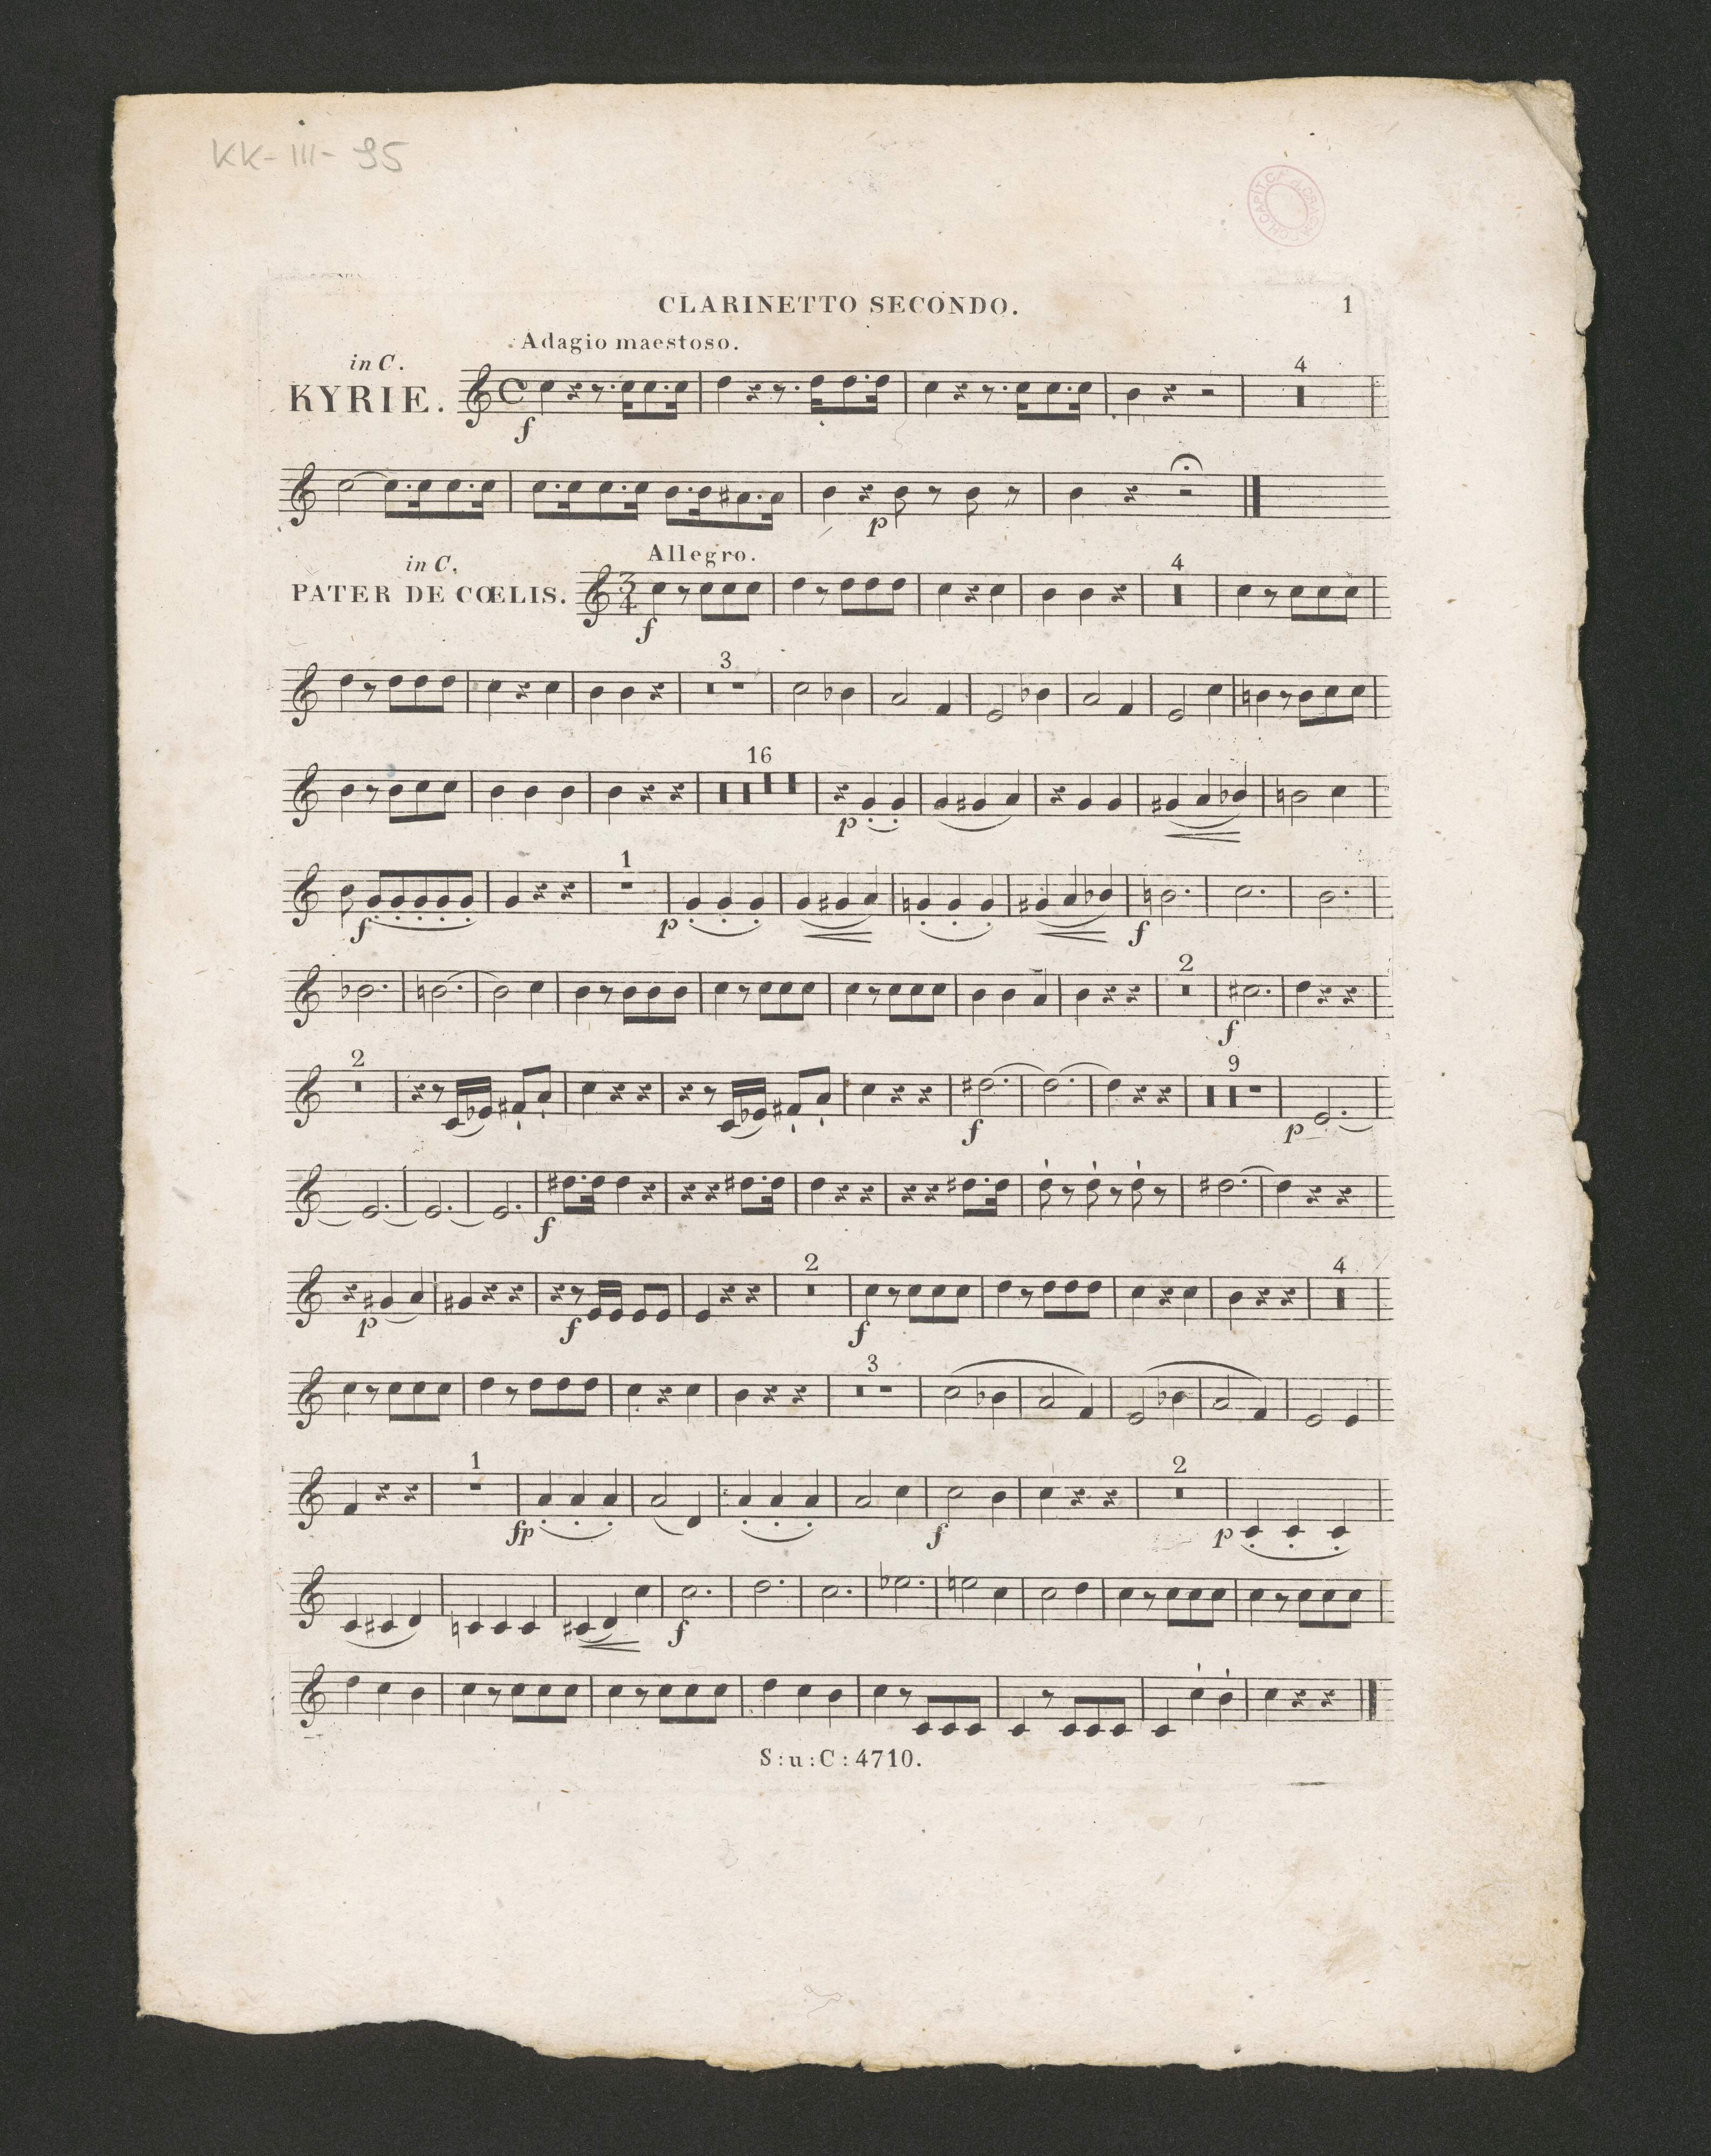 KK-III-95
CLARINETTO SECONDO. 1
Adagio maestoso.
in C.
KYRIE.
4
f
p
Allegro.
in C.
PATER DE CŒLIS.
3
4
4
f
3
16
p
1
f p f
2
f
2 9
f p
f
2 4
p f f
3
1 2
fp f p
f
S:u:C:4710.